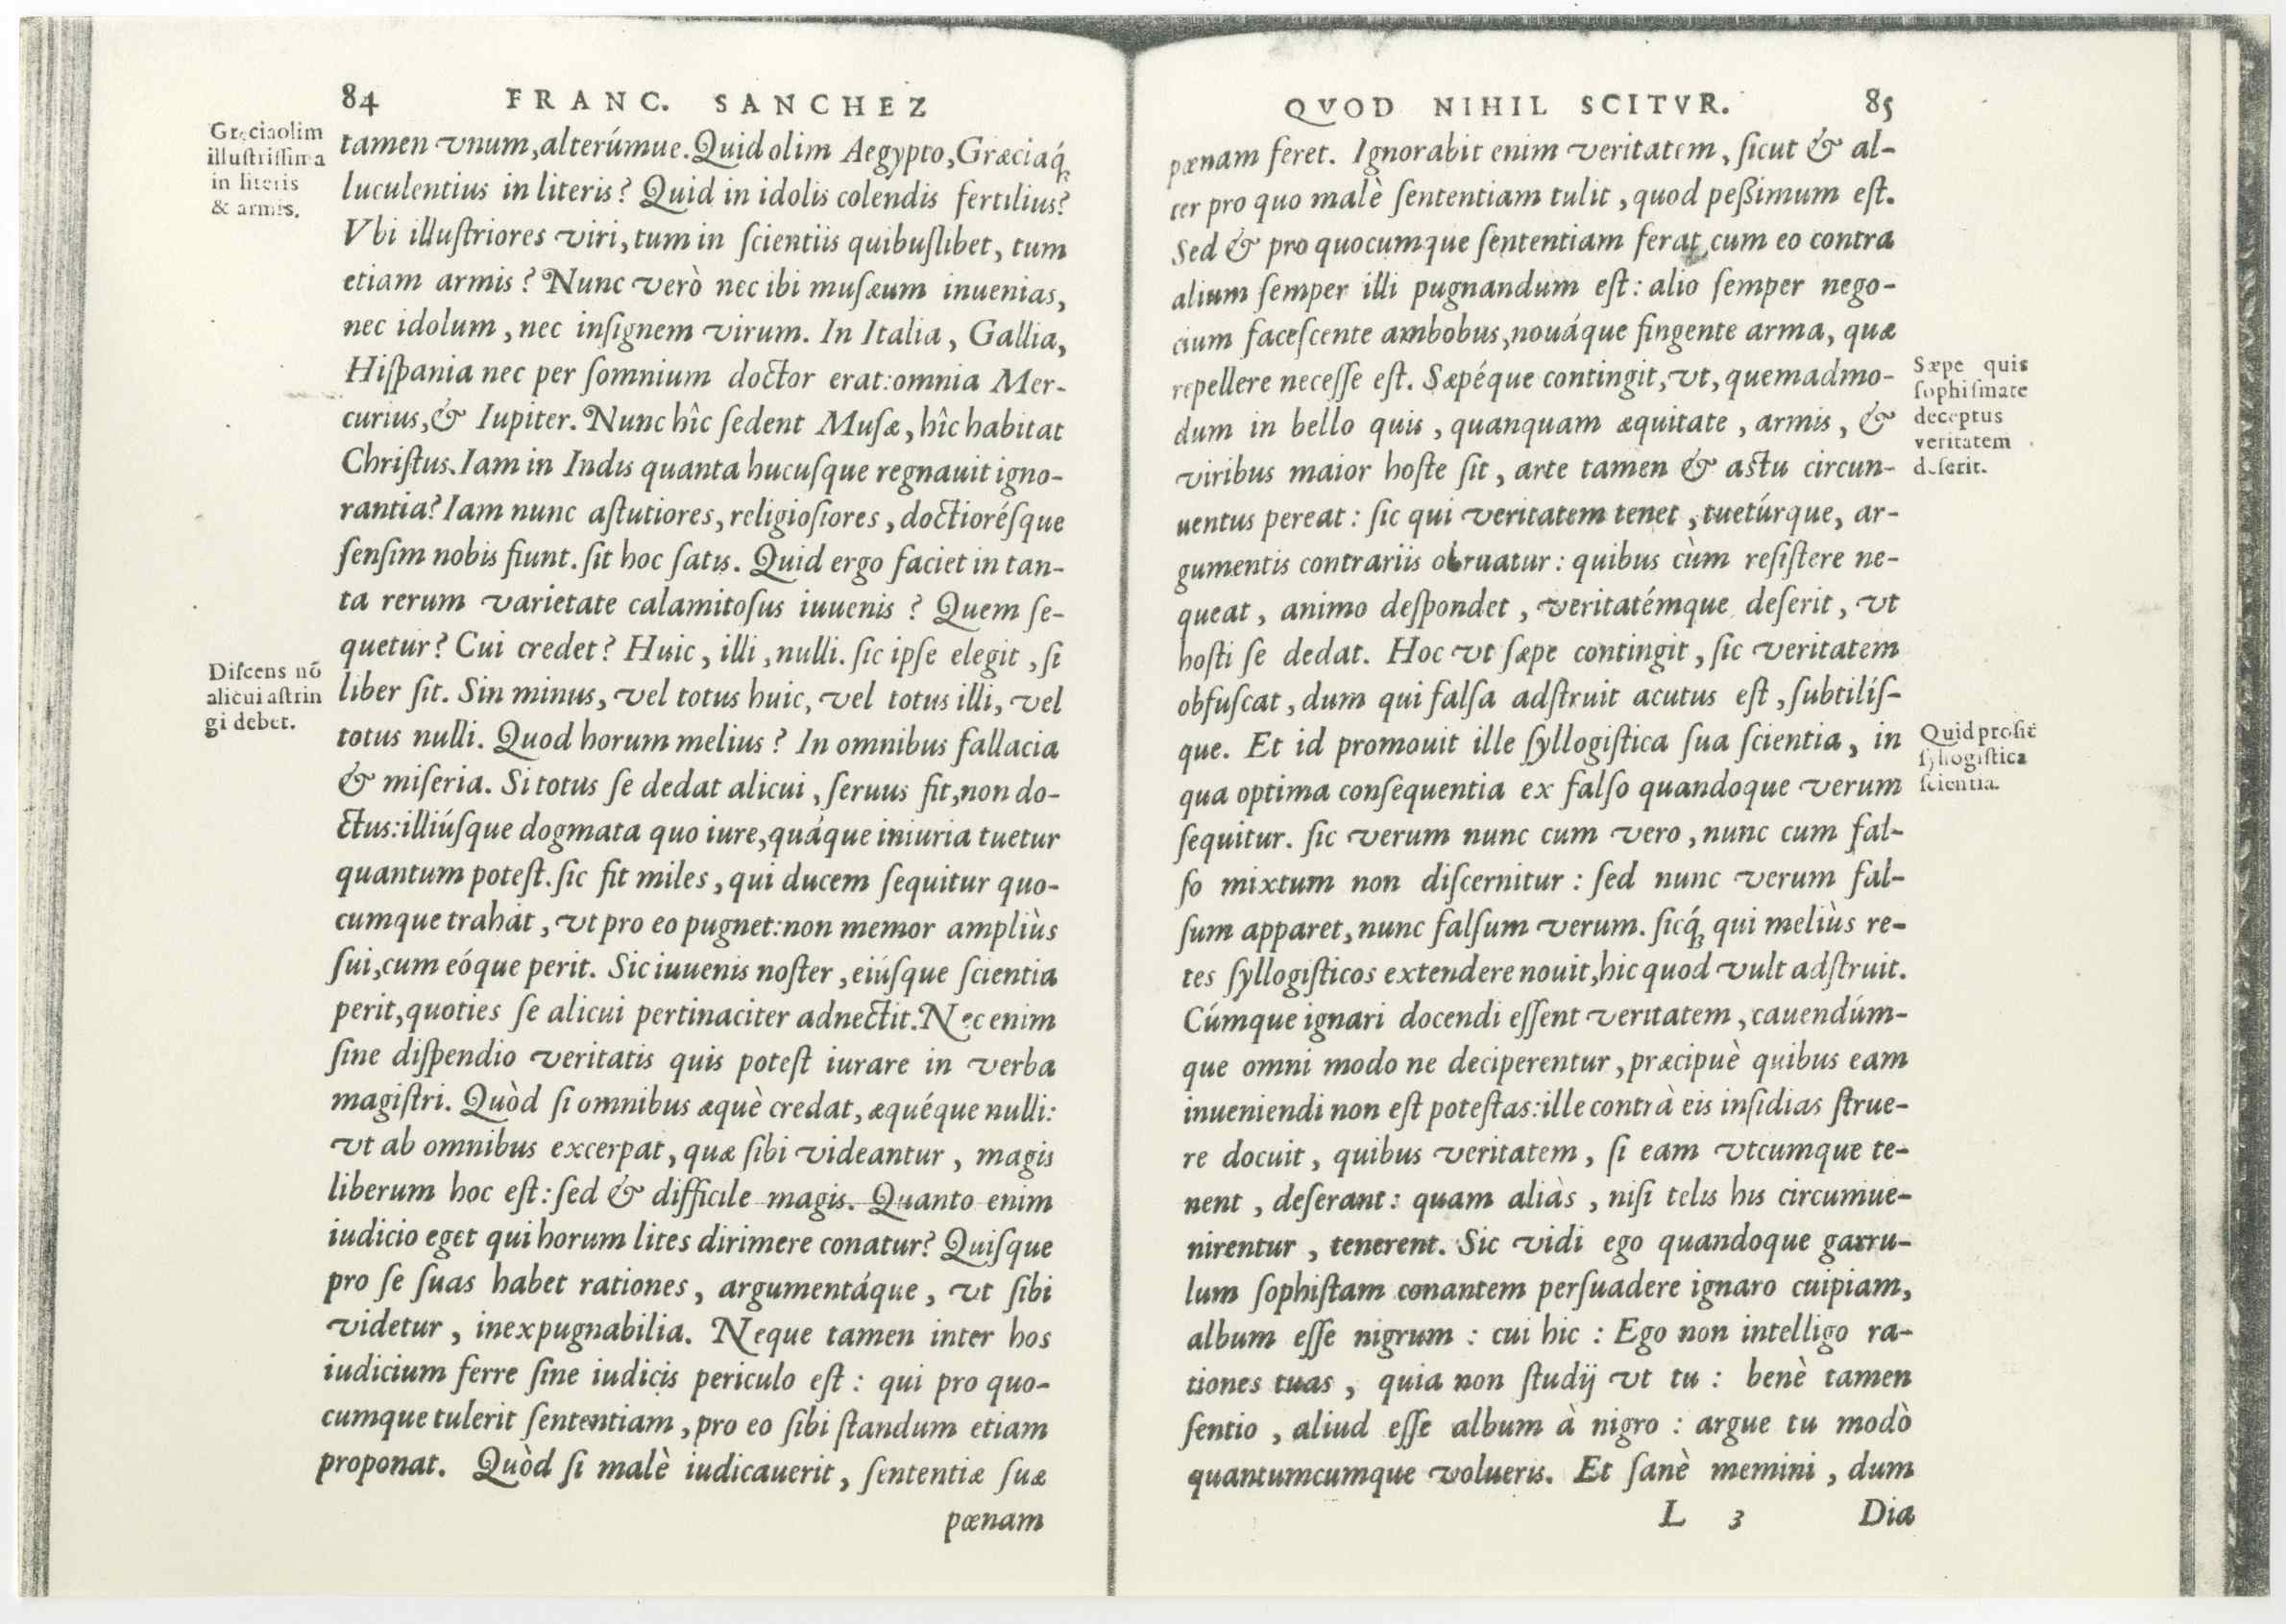 84 FRANC. SANCHEZ
Grẹciaolim
illuſtriſſima
in literis
& armis.
tamen vnum, alterúmue. Quid olim Aegypto, Græciaq́;
luculentius in literis? Quid in idolis colendis fertilius?
Vbi illuſtriores viri, tum in ſcientiis quibuſlibet, tum
etiam armis? Nunc verò nec ibi muſæum inuenias,
nec idolum, nec inſignem virum. In Italia, Gallia,
Hiſpania nec per ſomnium doctor erat: omnia Mer-
curius, & Iupiter. Nunc hîc ſedent Muſæ, hîc habitat
Chriſtus. Iam in Indis quanta hucuſque regnauit igno-
rantia? Iam nunc aſtutiores, religioſiores, doctioréſque
ſenſim nobis fiunt. ſit hoc ſatis. Quid ergo faciet in tan-
ta rerum varietate calamitoſus iuuenis? Quem ſe-
quetur? Cui credet? Huic, illi, nulli. ſic ipſe elegit, ſi
Diſcens nō
alicui aſtrin
gi debet.
liber ſit. Sin minus, vel totus huic, vel totus illi, vel
totus nulli. Quod horum melius? In omnibus fallacia
& miſeria. Si totus ſe dedat alicui, ſeruus fit, non do-
ctus: illiúſque dogmata quo iure, quáque iniuria tuetur
quantum poteſt. ſic fit miles, qui ducem ſequitur quo-
cumque trahat, vt pro eo pugnet: non memor ampliùs
ſui, cum eóque perit. Sic iuuenis noſter, eiúſque ſcientia
perit, quoties ſe alicui pertinaciter adnectit. Nec enim
ſine diſpendio veritatis quis poteſt iurare in verba
magiſtri. Quòd ſi omnibus æquè credat, æquéque nulli:
vt ab omnibus excerpat, quæ ſibi videantur, magis
liberum hoc eſt: ſed & difficile magis. Quanto enim
iudicio eget qui horum lites dirimere conatur? Quiſque
pro ſe ſuas habet rationes, argumentáque, vt ſibi
videtur, inexpugnabilia. Neque tamen inter hos
iudicium ferre ſine iudicis periculo eſt: qui pro quo-
cumque tulerit ſententiam, pro eo ſibi ſtandum etiam
proponat. Quòd ſi malè iudicauerit, ſententiæ ſuæ
pœnam
QVOD NIHIL SCITVR. 85
pœnam feret. Ignorabit enim veritatem, ſicut & al-
ter pro quo malè ſententiam tulit, quod peßimum eſt.
Sed & pro quocumque ſententiam ferat, cum eo contra
alium ſemper illi pugnandum eſt: alio ſemper nego-
cium faceſcente ambobus, nouáque fingente arma, quæ
repellere neceſſe eſt. Sæpéque contingit, vt, quemadmo-
dum in bello quis, quanquam æquitate, armis, &
viribus maior hoſte ſit, arte tamen & aſtu circun-
Sæpe quis
ſophiſmate
deceptus
veritatem
deſerit.
uentus pereat: ſic qui veritatem tenet, tuetúrque, ar-
gumentis contrariis obruatur: quibus cùm reſiſtere ne-
queat, animo deſpondet, veritatémque deſerit, vt
hoſti ſe dedat. Hoc vt ſæpe contingit, ſic veritatem
obfuſcat, dum qui falſa adſtruit acutus eſt, ſubtilíſ-
que. Et id promouit ille ſyllogiſtica ſua ſcientia, in
qua optima conſequentia ex falſo quandoque verum
Quid proſit
ſyllogiſtica
ſcientia.
ſequitur. ſic verum nunc cum vero, nunc cum fal-
ſo mixtum non diſcernitur: ſed nunc verum fal-
ſum apparet, nunc falſum verum. ſicq́; qui meliùs re-
tes ſyllogiſticos extendere nouit, hic quod vult adſtruit.
Cúmque ignari docendi eſſent veritatem, cauendúm-
que omni modo ne deciperentur, præcipuè quibus eam
inueniendi non eſt poteſtas: ille contrà eis inſidias ſtrue-
re docuit, quibus veritatem, ſi eam vtcumque te-
nent, deſerant: quam aliàs, niſi telis his circumue-
nirentur, tenerent. Sic vidi ego quandoque garru-
lum ſophiſtam conantem perſuadere ignaro cuipiam,
album eſſe nigrum: cui hic: Ego non intelligo ra-
tiones tuas, quia non ſtudij vt tu: benè tamen
ſentio, aliud eſſe album à nigro: argue tu modò
quantumcumque volueris. Et ſanè memini, dum
L 3 Dia